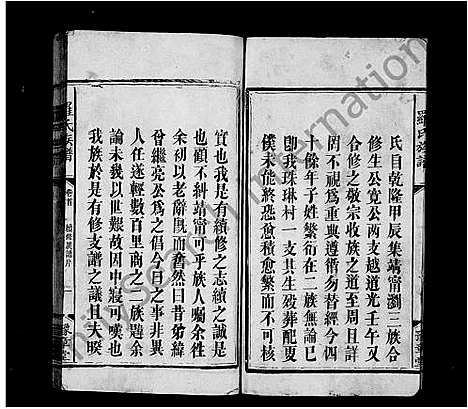 氏目乾隆甲辰集靖甯瀏三族合
修生公寬公兩支越道光壬午又
合修之敬宗收族之道至周且詳
罔不視爲重典遵循勿替經今四
十餘年子姓繁衍在二族無論已
卽我珠琳村一支具生歿葬配夏
僕未能終恐愈積愈繁而不可核
實也我是有續修之志續之誠是
也顧不糾靖甯可乎族人囑余牲
余初以老辭旣而奮然曰昔弟緯
曾繼亮公爲之倡今日之事非異
人任遂輕數百里商之二族前題之
論未幾以世艱故因中寢可嘆也
我族於是有修支譜之議且夫睽
羅氏族譜
卷首
豫章堂
羅氏族譜
豫章堂
FamilySearch International